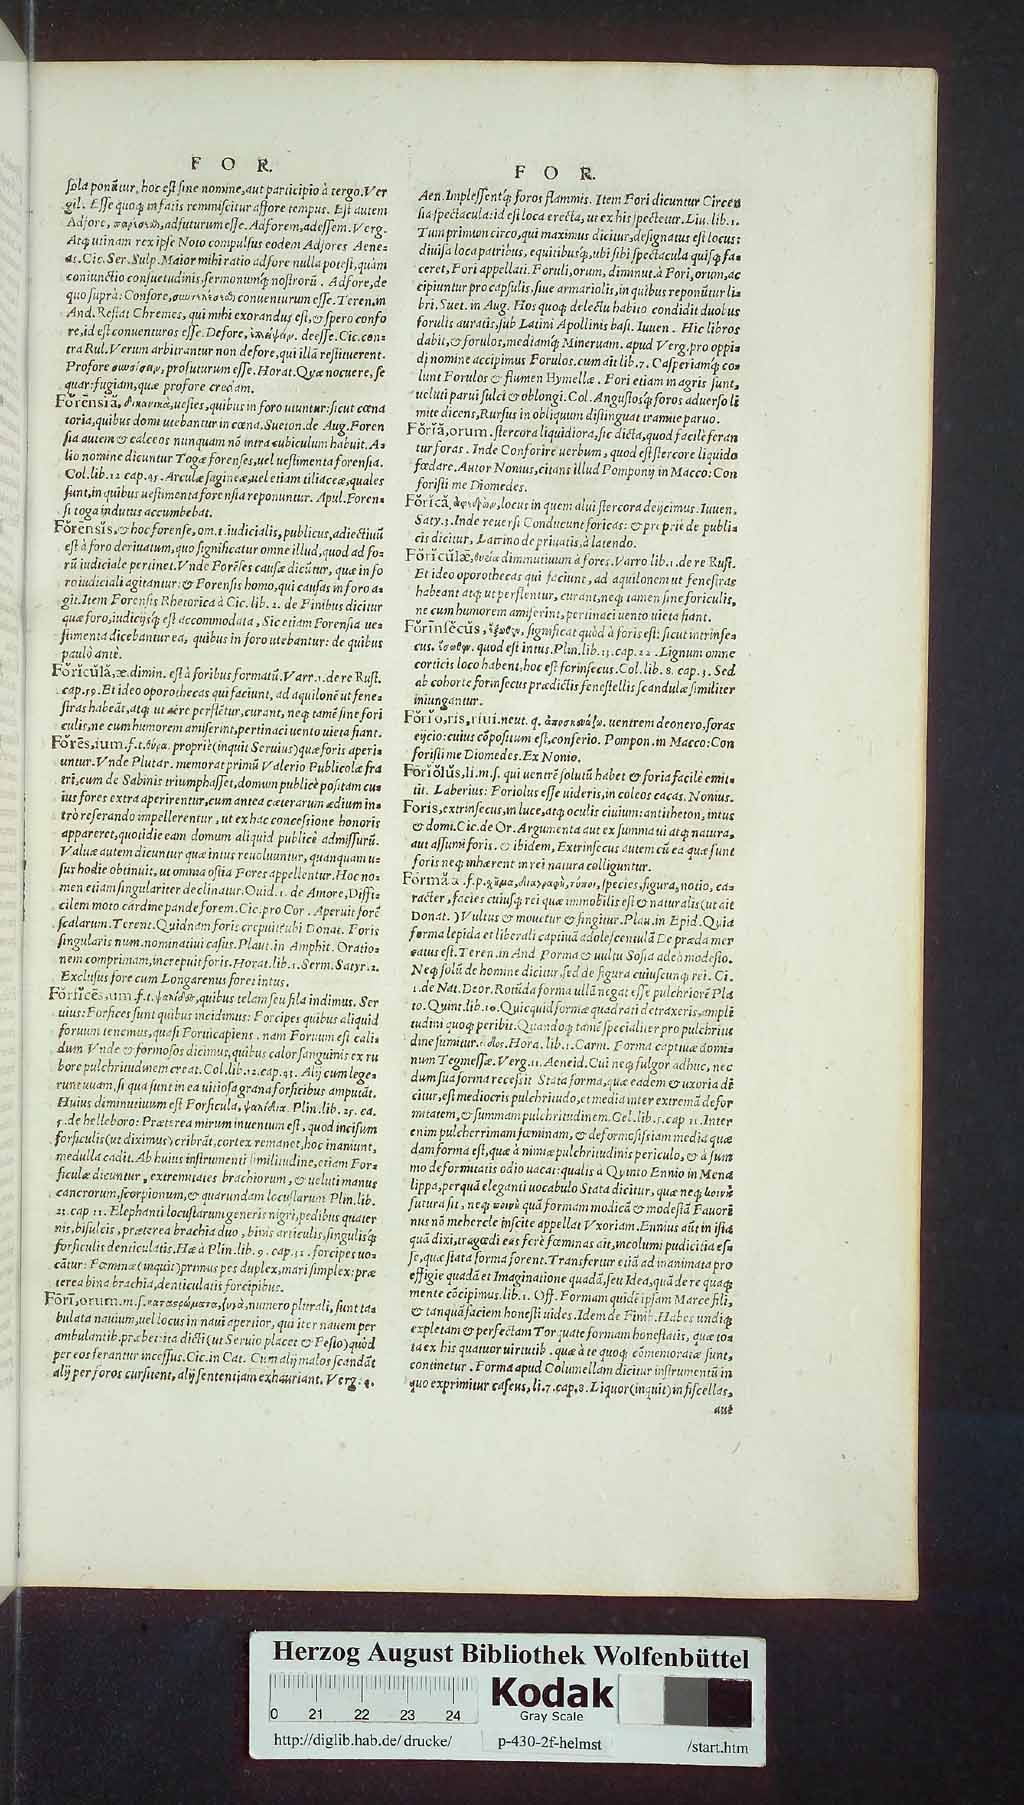 F O R.
sola ponũtur, hoc est sine nomine, aut participio à tergo. Ver
gil. Esse quoq; in fatis reminiscitur affore tempus. Est autem
Adfore, adfuturum esse. Adforem, adessem. Verg.
Atq; utinam rex ipse Noto compulsus eodem Adfores Aene-
as. Cic. Ser. Sulp. Maior mihi ratio adfore nulla potest, quàm
coniunctio consuetudinis, sermonumq́; nostrorũ. Adfore, de
quo suprà: Confore, conuenturum esse. Teren. in
And. Restat Chremes, qui mihi exorandus est, & spero confo
re, id est conuenturos esse. Defore, deesse. Cic. con-
tra Rul. Verum arbitrantur non defore, qui illã restituerent.
Profore profuturum esse. Horat. Quæ nocuere, se
quar: fugiam, quæ profore credam.
Forensia, δικανικὰ, uestes, quibus in foro utuntur: sicut cœna
toria, quibus domi utebantur in cœna. Sueton. de Aug. Foren
sia autem & calceos nunquam nõ intra cubiculum habuit. A-
lio nomine dicuntur Togæ forenses, uel uestimenta forensia.
Col. lib. 12. cap. 45. Arculæ sagineæ, uel etiam tiliaceæ, quales
sunt, in quibus uestimenta forensia reponuntur. Apul. Foren-
si toga indutus accumbebat.
Forensis, & hoc forense, om. t. iudicialis, publicus, adiectiuũ
est à foro deriuatum, quo significatur omne illud, quod ad fo-
rũ iudiciale pertinet. Vnde Forẽses causæ dicũtur, quæ in fo
ro iudiciali agitantur: & Forensis homo, qui causas in foro a-
git. Item Forensis Rhetorica à Cic. lib. 2. de Finibus dicitur
quæ foro, iudicijsq́; est accommodata, Sic etiam Forensia ue-
stimenta dicebantur ea, quibus in foro utebantur: de quibus
paulò antè.
Foricula, æ. dimin. est à foribus formatũ. Varr. 1. de re Rust.
cap. 59. Et ideo oporothecas qui faciunt, ad aquilonẽ ut fene-
stras habeãt, atq; ut aëre perflẽtur, curant, neq; tamẽ sine fori
culis, ne cum humorem amiserint, pertinaci uento uieta fiant.
Fores, ium. f. t. θύρα. propriè (inquit Seruius) quæ foris aperi-
untur. Vnde Plutar. memorat primũ Valerio Publicolæ fra
tri, cum de Sabinis triumphasset, domum publicè positam cu-
ius fores extra aperirentur, cum antea cæterarum ædium in-
trò referando impellerentur, ut ex hac concessione honoris
appareret, quotidie eam domum aliquid publicè admissurũ.
Valuæ autem dicuntur quæ intus reuoluuntur, quanquam u-
sus hodie obtinuit, ut omnia ostia Fores appellentur. Hoc no-
men etiam singulariter declinatur. Ouid. 1. de Amore, Diffi-
cilem moto cardine pande forem. Cic. pro Cor. Aperuit forẽ
scalarum. Terent. Quidnam foris crepuit: ubi Donat. Foris
singularis num. nominatiui casus. Plaut. in Amphit. Oratio-
nem comprimam, increpuit foris. Horat. lib. 1. Serm. Satyr. 2.
Exclusus fore cum Longarenus foret intus.
Forfices, um. f. t. quibus telam seu fila indimus. Ser
uius: Forfices sunt quibus incidimus: Forcipes quibus aliquid
foruum tenemus, quasi Foruicapiens. nam Foruum est cali-
dum Vnde & formosos dicimus, quibus calor sanguinis ex ru
bore pulchritudinem creat. Col. lib. 12. cap. 43. Alij cum lege-
runt uuam, si qua sunt in ea uitiosa grana forficibus amputãt.
Huius diminutiuum est Forficula, Plin. lib. 25. ca.
5. de helleboro: Præterea mirum inuentum est, quod incisum
forficulis (ut diximus) cribrãt, cortex remanet, hoc inaniunt,
medulla cadit. Ab huius instrumenti similitudine, etiam For-
ficulæ dicuntur, extremitates brachiorum, & ueluti manus
cancrorum, scorpionum, & quarundam locustarum Plin. lib.
25. cap 11. Elephanti locustarum generis nigri, pedibus quater
nis, bisulcis, præterea brachia duo, binis articulis, singulisq́;
forficulis denticulatis. Hæ à Plin. lib. 9. cap. 31. forcipes uo-
cãtur: Fœminæ (inquit) primus pes duplex, mari simplex: præ
terea bina brachia, denticulatis forcipibus.
Fori, orum. m. s. numero plurali, sunt ta-
bulata nauium, uel locus in naui apertior, qui iter nauem per
ambulantib. præbet: ita dicti (ut Seruio placet & Festo) quòd
per eos ferantur incessus. Cic. in Cat. Cum alij malos scandãt
alij per foros cursitent, alij sententiam exhauriant. Verg. 4.
F O R.
Aen. Implessentq́; foros flammis. Item Fori dicuntur Circen
sia spectacula: id est loca erecta, ut ex his spectetur. Liu. lib. 1.
Tum primum circo, qui maximus dicitur, designatus est locus:
diuisa loca patribus, equitibusq́;, ubi sibi spectacula quisq; fa-
ceret, Fori appellati. Foruli, orum, diminut. à Fori, orum, ac
cipiuntur pro capsulis, siue armariolis, in quibus reponũtur li-
bri. Suet. in Aug. Hos quoq; delectu habito condidit duobus
forulis auratis, sub Latini Apollinis basi. Iuuen. Hic libros
dabit, & forulos, mediamq́; Mineruam. apud Verg. pro oppi-
di nomine accipimus Forulos. cum ait lib. 7. Casperiamq́; co-
lunt Forulos & flumen Hymellæ. Fori etiam in agris sunt,
ueluti parui sulci & oblongi. Col. Angustosq́; foros aduerso li
mite dicens, Rursus in obliquum distinguat tramite paruo.
Foria, orum. stercora liquidiora, sic dicta, quod facilè feran
tur foras. Inde Conforire uerbum, quod est stercore liquido
fœdare. Autor Nonius, citans illud Pompony in Macco: Con
foristi me Diomedes.
Forica, locus in quem alui stercora deijcimus. Iuuen.
Saty. 3. Inde reuersi Conducunt foricas: & propriè de publi-
cis dicitur, Latrino de priuatis, à latendo.
Foriculæ, θυρία diminutiuum à fores. Varro lib. 1. de re Rust.
Et ideo oporothecas qui faciunt, ad aquilonem ut fenestras
habeant atq; ut perflentur, curant, neq; tamen sine foriculis,
ne cum humorem amiserint, pertinaci uento uieta fiant.
Forinsecus, ἔξωθεν, significat quòd à foris est: sicut intrinse-
cus. ἔσωθεν. quod est intus. Plin. lib. 13. cap. 22. Lignum omne
corticis loco habent, hoc est forinsecus. Col. lib. 8. cap. 3. Sed
ab cohorte forinsecus prædictis fenestellis scandulæ similiter
iniungantur.
Forio, ris, riui. neut. q. uentrem deonero, foras
eijcio: cuius cõpositum est, conforio. Pompon. in Macco: Con
foristi me Diomedes. Ex Nonio.
Foriolus, li. m. s. qui uentrẽ solutũ habet & foria facilè emit-
tit. Laberius: Foriolus esse uideris, in coleos cacas. Nonius.
Foris, extrinsecus, in luce, atq; oculis ciuium: antitheton, intus
& domi. Cic. de Or. Argumenta aut ex summa ui atq; natura,
aut assumi foris. & ibidem, Extrinsecus autem cũ ea quæ sunt
foris neq; inhærent in rei natura colliguntur.
Forma æ. f. p. species, figura, notio, ca-
racter, facies cuiusq́; rei quæ immobilis est & naturalis (ut ait
Donat.) Vultus & mouetur & fingitur. Plau. in Epid. Quia
forma lepida et liberali captiuã adolescentulã De præda mer
catus est. Teren. in And Forma & uultu Sosia adeò modesto.
Neq; solũ de homine dicitur, sed de figura cuiuscunq; rei. Ci.
1. de Nat. Deor. Rotũda forma ullã negat esse pulchriorẽ Pla
to. Quint. lib. 10. Quicquid formæ quadrati detraxeris, ampli
tudini quoq; peribit. Quandoq; tamẽ specialiter pro pulchritu
dine sumitur. Hora. lib. 1. Carm. Forma captiuæ domi-
num Tegmessæ. Verg. 11. Aeneid. Cui neq; fulgor adhuc, nec
dum sua forma recessit Stata forma, quæ eadem & uxoria di
citur, est mediocris pulchritudo, et media inter extremã defor
mitatem, & summam pulchritudinem. Gel. lib. 5. cap 11. Inter
enim pulcherrimam fœminam, & deformosissiam media quæ
dam forma est, quæ à nimiæ pulchritudinis periculo, & à sum
mo deformitatis odio uacat: qualis à Quinto Ennio in Mena
lippa, perquã eleganti uocabulo Stata dicitur, quæ neq;
futura sit, neq; quã formam modicã & modestã Fauori
nus nõ mehercle inscite appellat Vxoriam. Ennius aũt in ista
quã dixi, tragœdi eas ferè fœminas ait, incolumi pudicitia es-
se, quæ stata forma forent. Transfertur etiã ad inanimata pro
effigie quadã et Imaginatione quadã, seu Idea, quã de re quaq;
mente cõcipimus. lib. 1. Off. Formam quidẽ ipsam Marce fili,
& tanquã faciem honesti uides. Idem de Finib. Habes undiq;
expletam & perfectam Torquate formam honestatis, quæ to-
ta ex his quatuor uirtutib. quæ à te quoq; cõmemoratæ sunt,
continetur. Forma apud Columellam dicitur instrumentũ in
quo exprimitur caseus, li. 7. cap. 8. Liquor (inquit) in fiscellas,
aut
Herzog August Bibliothek Wolfenbüttel
0 21 22 23 24
Kodak
Gray Scale
http://diglib.hab.de/drucke/ p-430-2f-helmst /start.htm